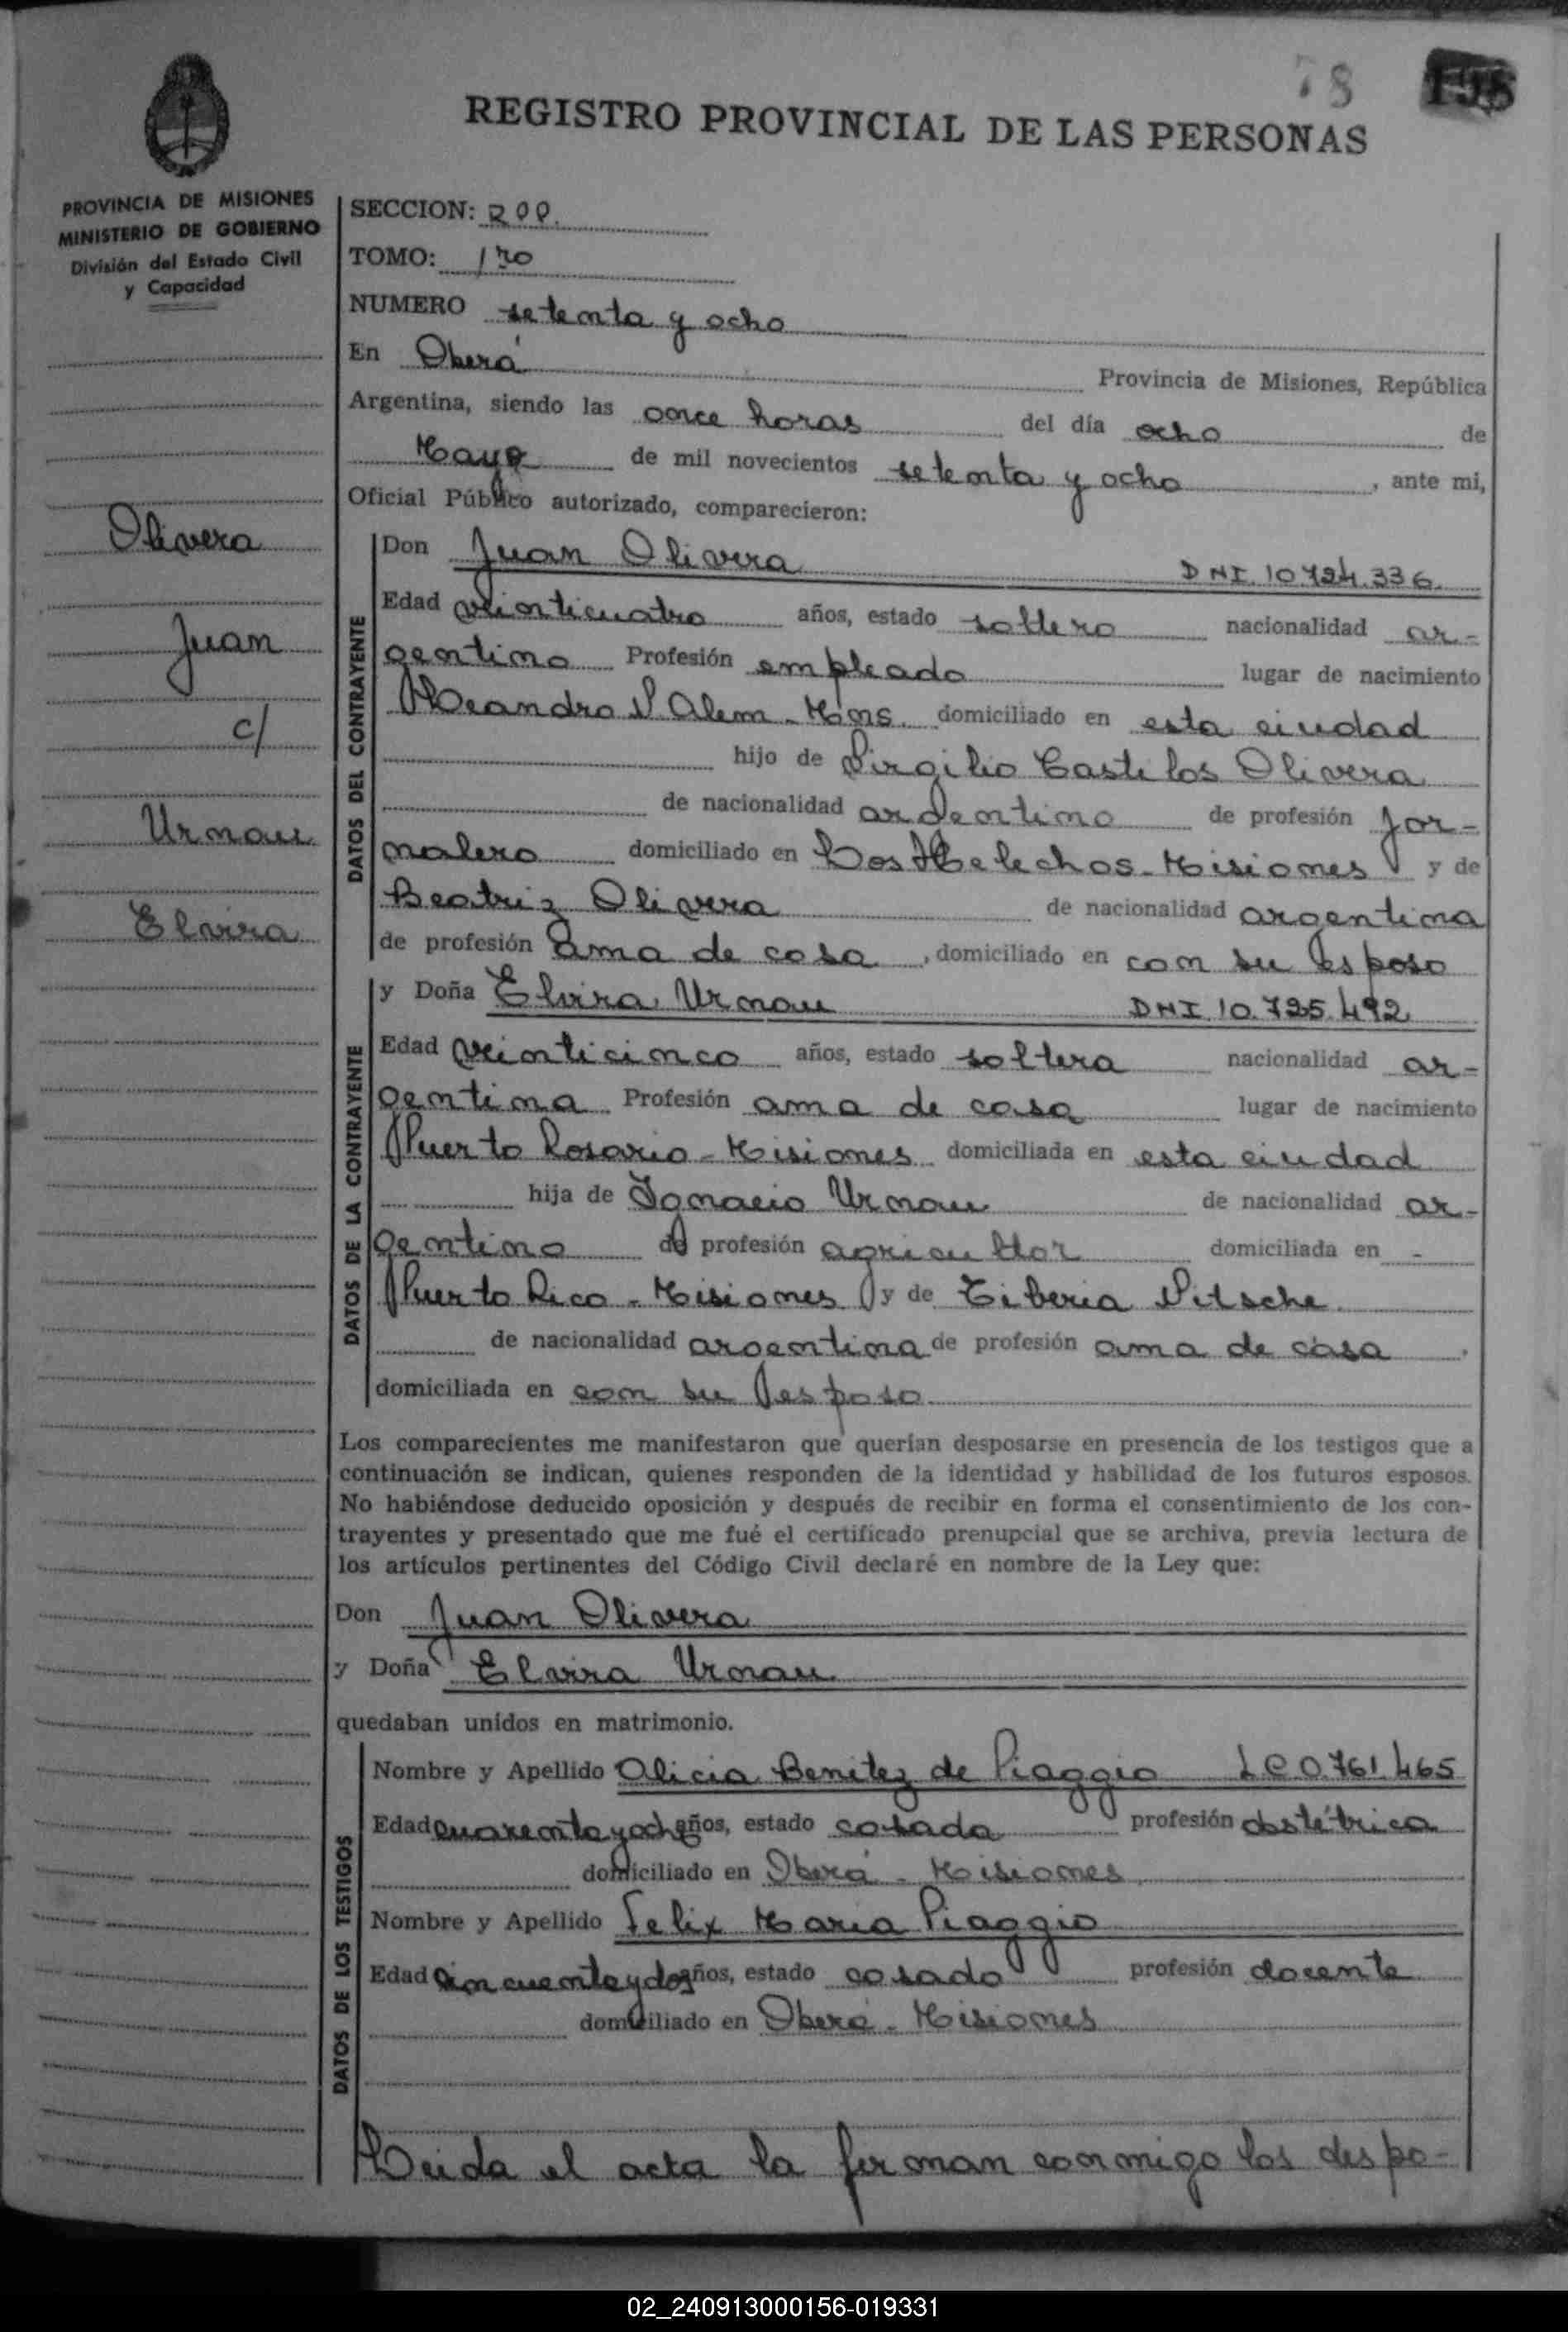 78
REGISTRO PROVINCIAL DE LAS PERSONAS
PROVINCIA DE MISIONES
MINISTERIO DE GOBIERNO
División del Estado Civil
y Capacidad
Olivera
Juan
c/
Urnau
Elvira
SECCION: 200.
TOMO: 1ro
NUMERO setenta y ocho
En Oberá Provincia de Misiones, República
Argentina, siendo las once horas del día ocho de
Mayo de mil novecientos setenta y ocho, ante mi,
Oficial Público autorizado, comparecieron:
DATOS DEL CONTRAYENTE
Don Juan Olivera DNI. 10.724.336.
Edad veinticuatro años, estado soltero nacionalidad ar-
gentino Profesión empleado lugar de nacimiento
Leandro N Alem - Mnes. domiciliado en esta ciudad
hijo de Virgilio Castilos Olivera
de nacionalidad argentino de profesión jor-
nalero domiciliado en Los Helechos - Misiones y de
Beatriz Olivera de nacionalidad argentina
de profesión ama de casa, domiciliado en con su esposo
DATOS DE LA CONTRAYENTE
y Doña Elvira Urnau DNI. 10.725.492
Edad veinticinco años, estado soltera nacionalidad ar-
gentina Profesión ama de casa lugar de nacimiento
Puerto Rosario - Misiones domiciliada en esta ciudad
hija de Ignacio Urnau de nacionalidad ar-
gentino de profesión agricultor domiciliada en -
Puerto Rico - Misiones y de Tiberia Nitsche
de nacionalidad argentina de profesión ama de casa.
domiciliada en con su esposo
Los comparecientes me manifestaron que querían desposarse en presencia de los testigos que a
continuación se indican, quienes responden de la identidad y habilidad de los futuros esposos.
No habiéndose deducido oposición y después de recibir en forma el consentimiento de los con-
trayentes y presentado que me fué el certificado prenupcial que se archiva, previa lectura de
los artículos pertinentes del Código Civil declaré en nombre de la Ley que:
Don Juan Olivera
y Doña Elvira Urnau
quedaban unidos en matrimonio.
DATOS DE LOS TESTIGOS
Nombre y Apellido Alicia Benitez de Piaggio LC 0.761.465
Edad cuarenta y ocho años, estado casada profesión obstétrica
domiciliado en Oberá - Misiones
Nombre y Apellido Felix Maria Piaggio
Edad cincuenta y dos años, estado casado profesión docente
domiciliado en Oberá - Misiones
Leida el acta la firman conmigo los despo-
02_240913000156-019331